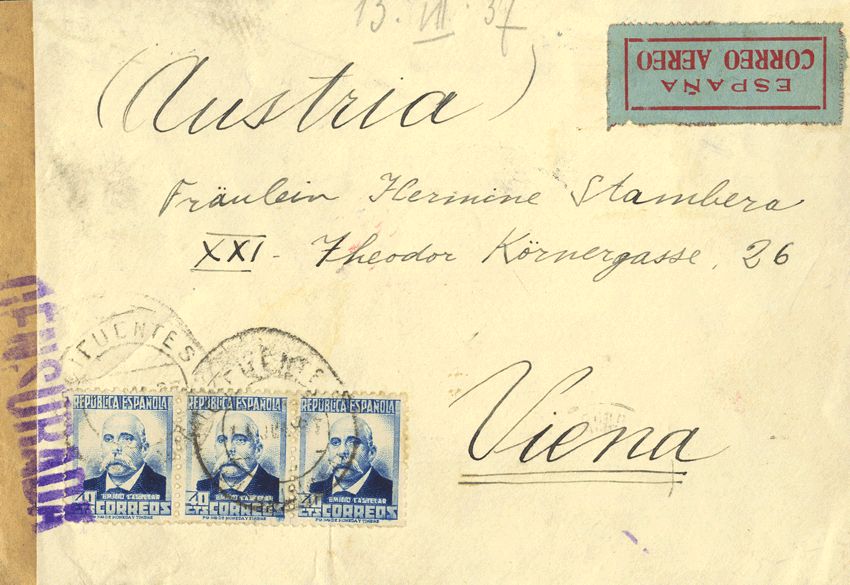 13. VII. 37
ESPAÑA
CORREO AEREO
(Austria)
Fräulein Hermine Stambera
XXI - Theodor Körnergasse. 26
Viena
CENSURADA
FUENTES
REPUBLICA ESPAÑOLA
EMILIO CASTELAR
40 CTS CORREOS
FCA NAL DE MONEDA Y TIMBRE
REPUBLICA ESPAÑOLA
EMILIO CASTELAR
40 CTS CORREOS
FCA NAL DE MONEDA Y TIMBRE
REPUBLICA ESPAÑOLA
EMILIO CASTELAR
40 CTS CORREOS
FCA NAL DE MONEDA Y TIMBRE